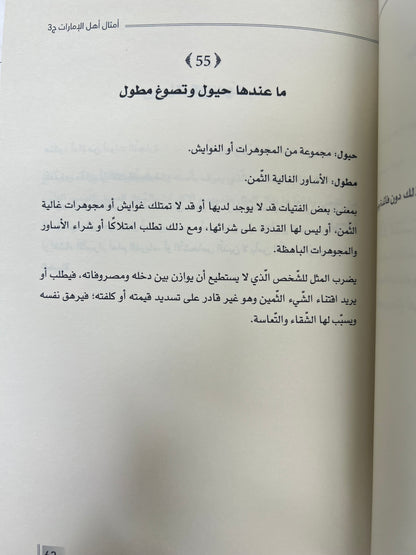 أمثال أهل الإمارات ج3
﴿55﴾
ما عندها حيول وتصوغ مطول
حيول: مجموعة من المجوهرات أو الغوايش.
مطول: الأساور الغالية الثّمن.
بمعنى: بعض الفتيات قد لا يوجد لديها أو قد لا تمتلك غوايش أو مجوهرات غالية
الثّمن، أو ليس لها القدرة على شرائها، ومع ذلك تطلب امتلاكًا أو شراء الأساور
والمجوهرات الباهظة.
يضرب المثل للشّخص الّذي لا يستطيع أن يوازن بين دخله ومصروفاته، فيطلب أو
يريد اقتناء الشّيء الثّمين وهو غير قادر على تسديد قيمته أو كلفته؛ فيرهق نفسه
ويسبّب لها الشّقاء والتّعاسة.